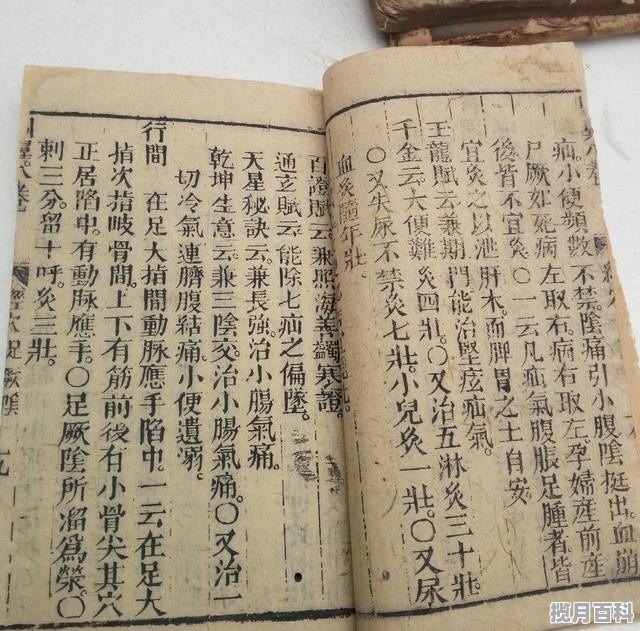 疝。小便頻數不禁。陰痛引小腹。陰挺出。血崩
尸厥如死。病左取右。病右取左。孕婦產前產
後皆不宜灸。〇一云凡疝氣腹脹足腫者皆
宜灸之。以泄肝木。而脾胃之土自安
玉龍賦云兼期門能治堅痃疝氣。
千金云大便難灸四壯。〇又治五淋灸三十壯
〇又失尿不禁灸七壯。小兒灸一壯。〇又尿
血灸隨年壯。
百證賦云兼照海善蠲寒
證。
通玄賦云能除七疝之偏墜。
天星秘訣云兼長強治小腸氣痛。
乾坤生意云兼三陰交治小腸氣痛。〇又治一
切冷氣連臍腹結痛小便遺溺。
行間 在足大指間動脉應手陷中。一云在足大
指次指岐骨間。上下有筋前後有小骨尖其穴
正居陷中。有動脉應手。〇足厥陰所溜爲滎。〇
刺三分。留十呼。灸三壯。
經穴足厥陰
揽月百科